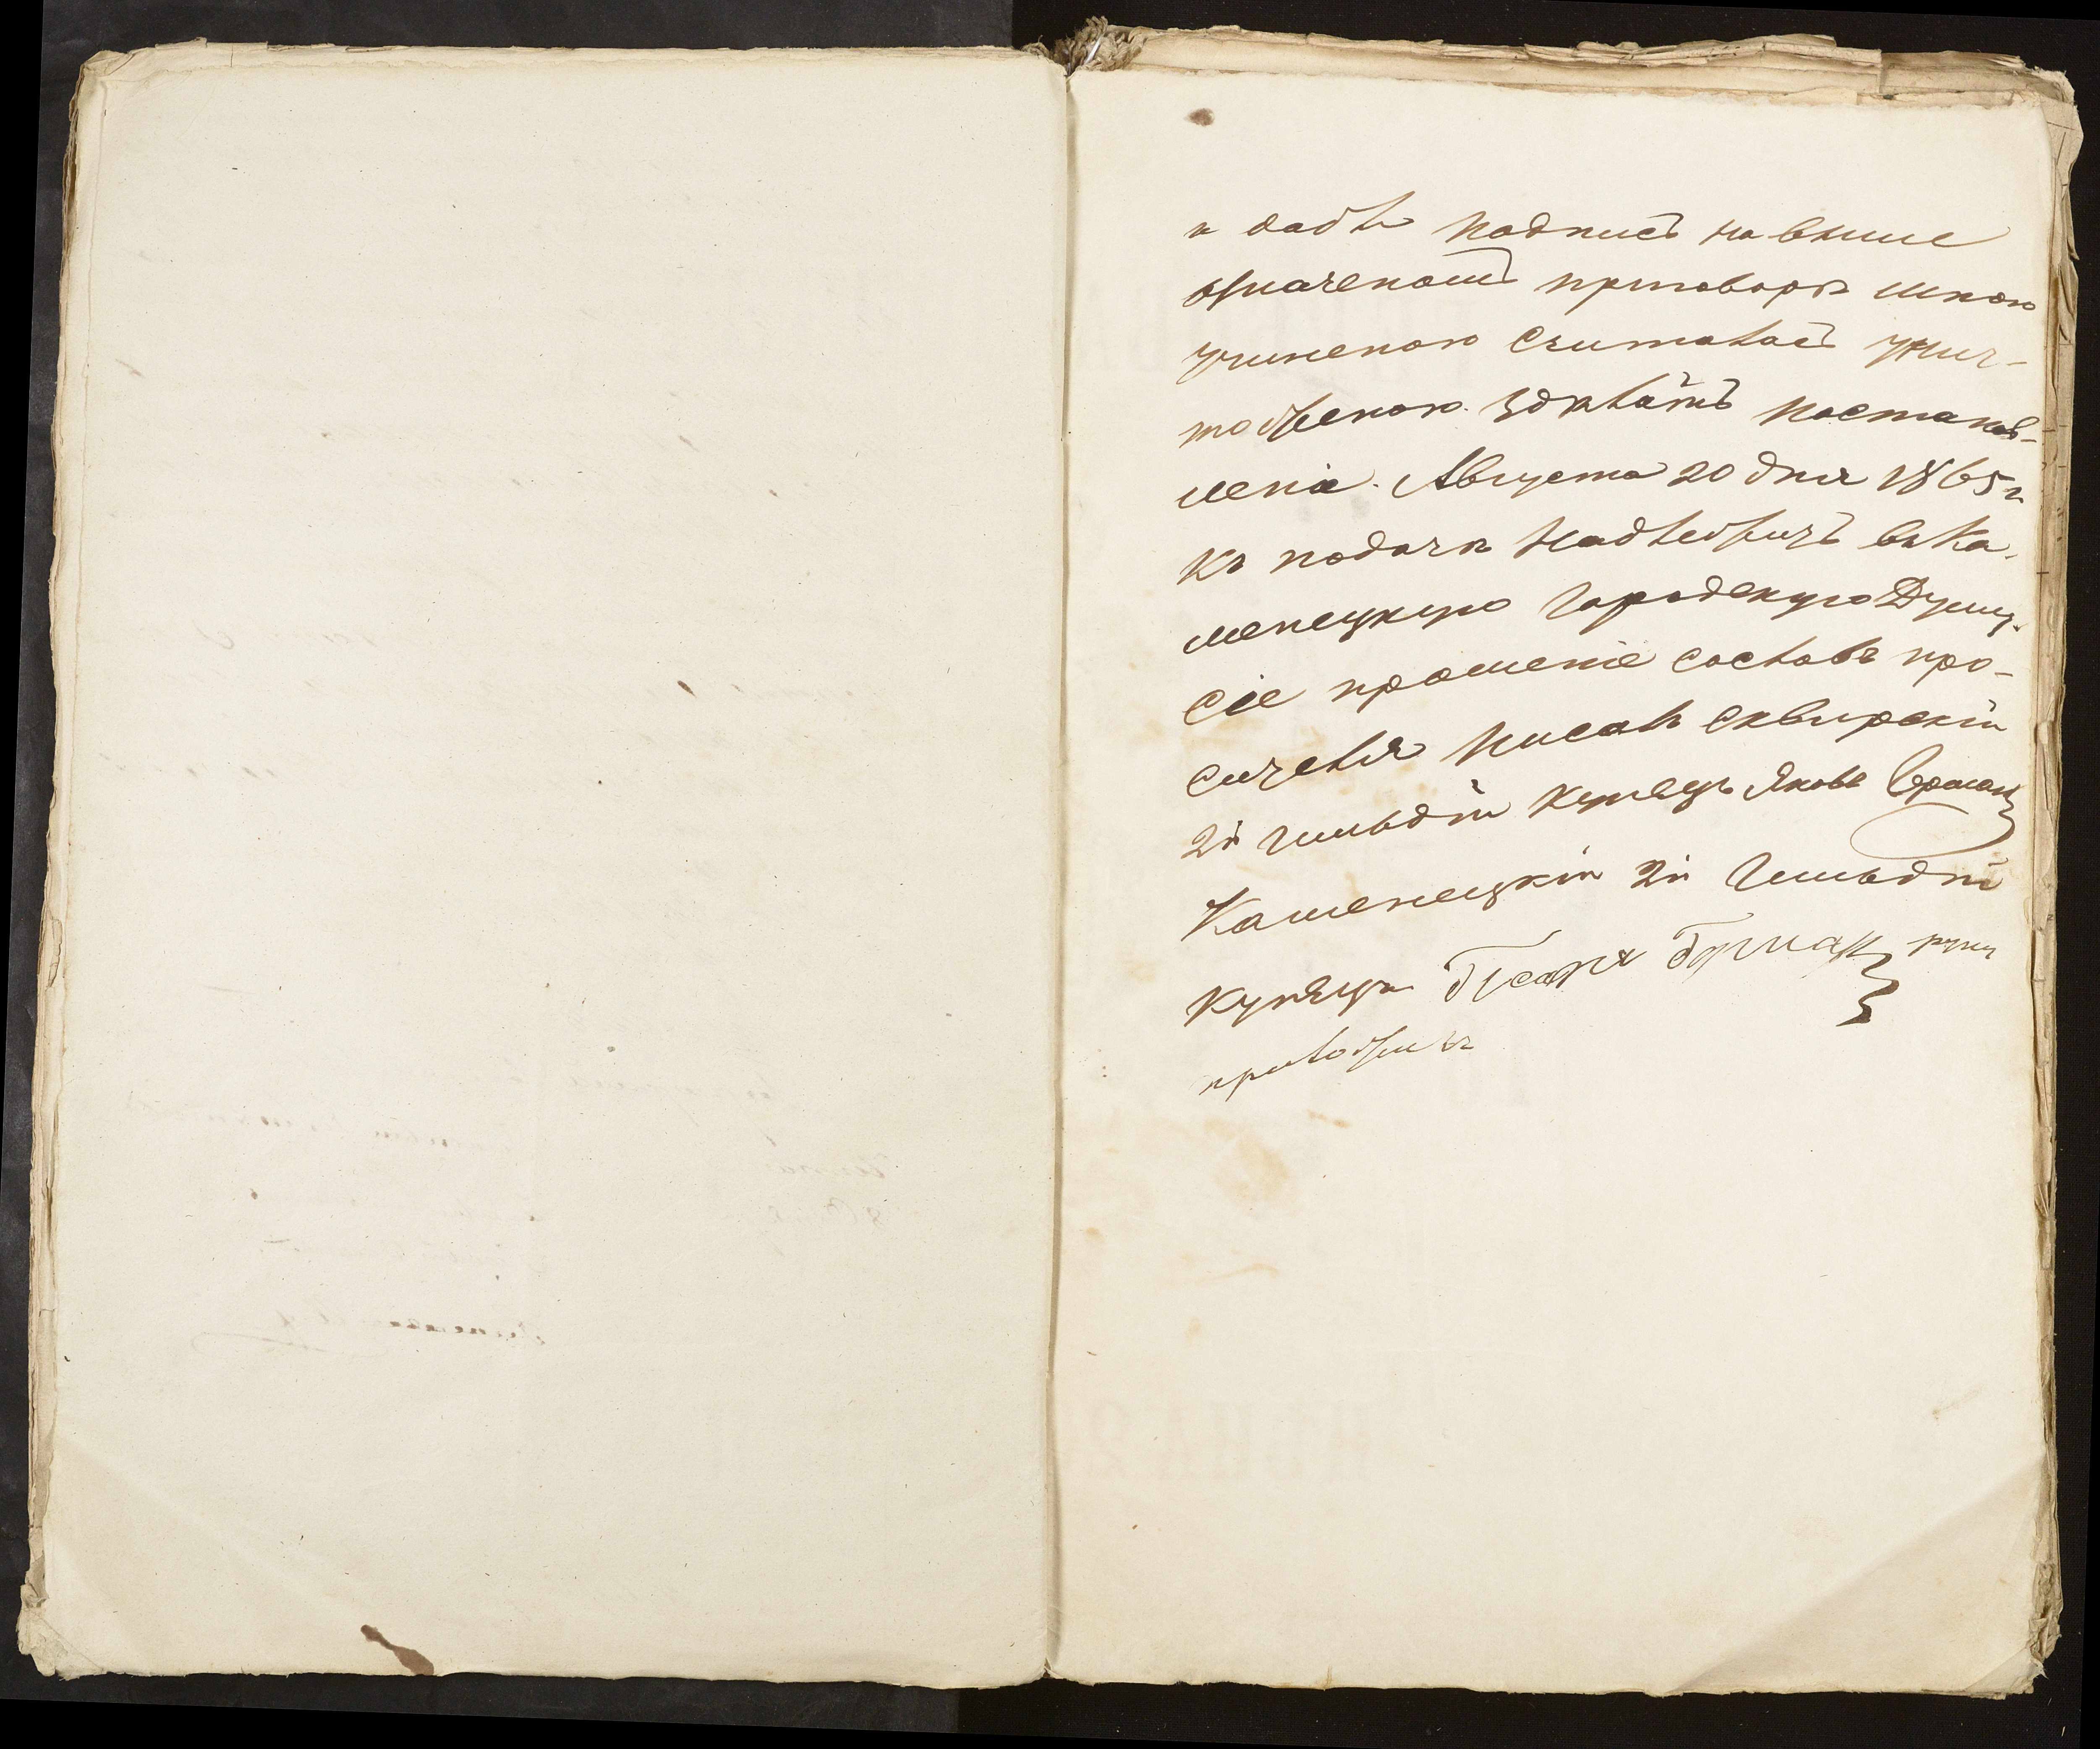 и дабы подпись на выше
означеномъ приговоры мною
учиненою считалась унич-
тоженою. Здѣлать постанов-
леніе. Августа 20 дня 1865 г
Къ подачи надлежитъ въ Ка-
менецкую Городскую Думу.
Сіе прошеніе составъ про-
сителя писалъ сквирскій
2й гильдіи купецъ Яковъ
Каменецкій 2й Гильдіи
Купецъ руку
приложилъ